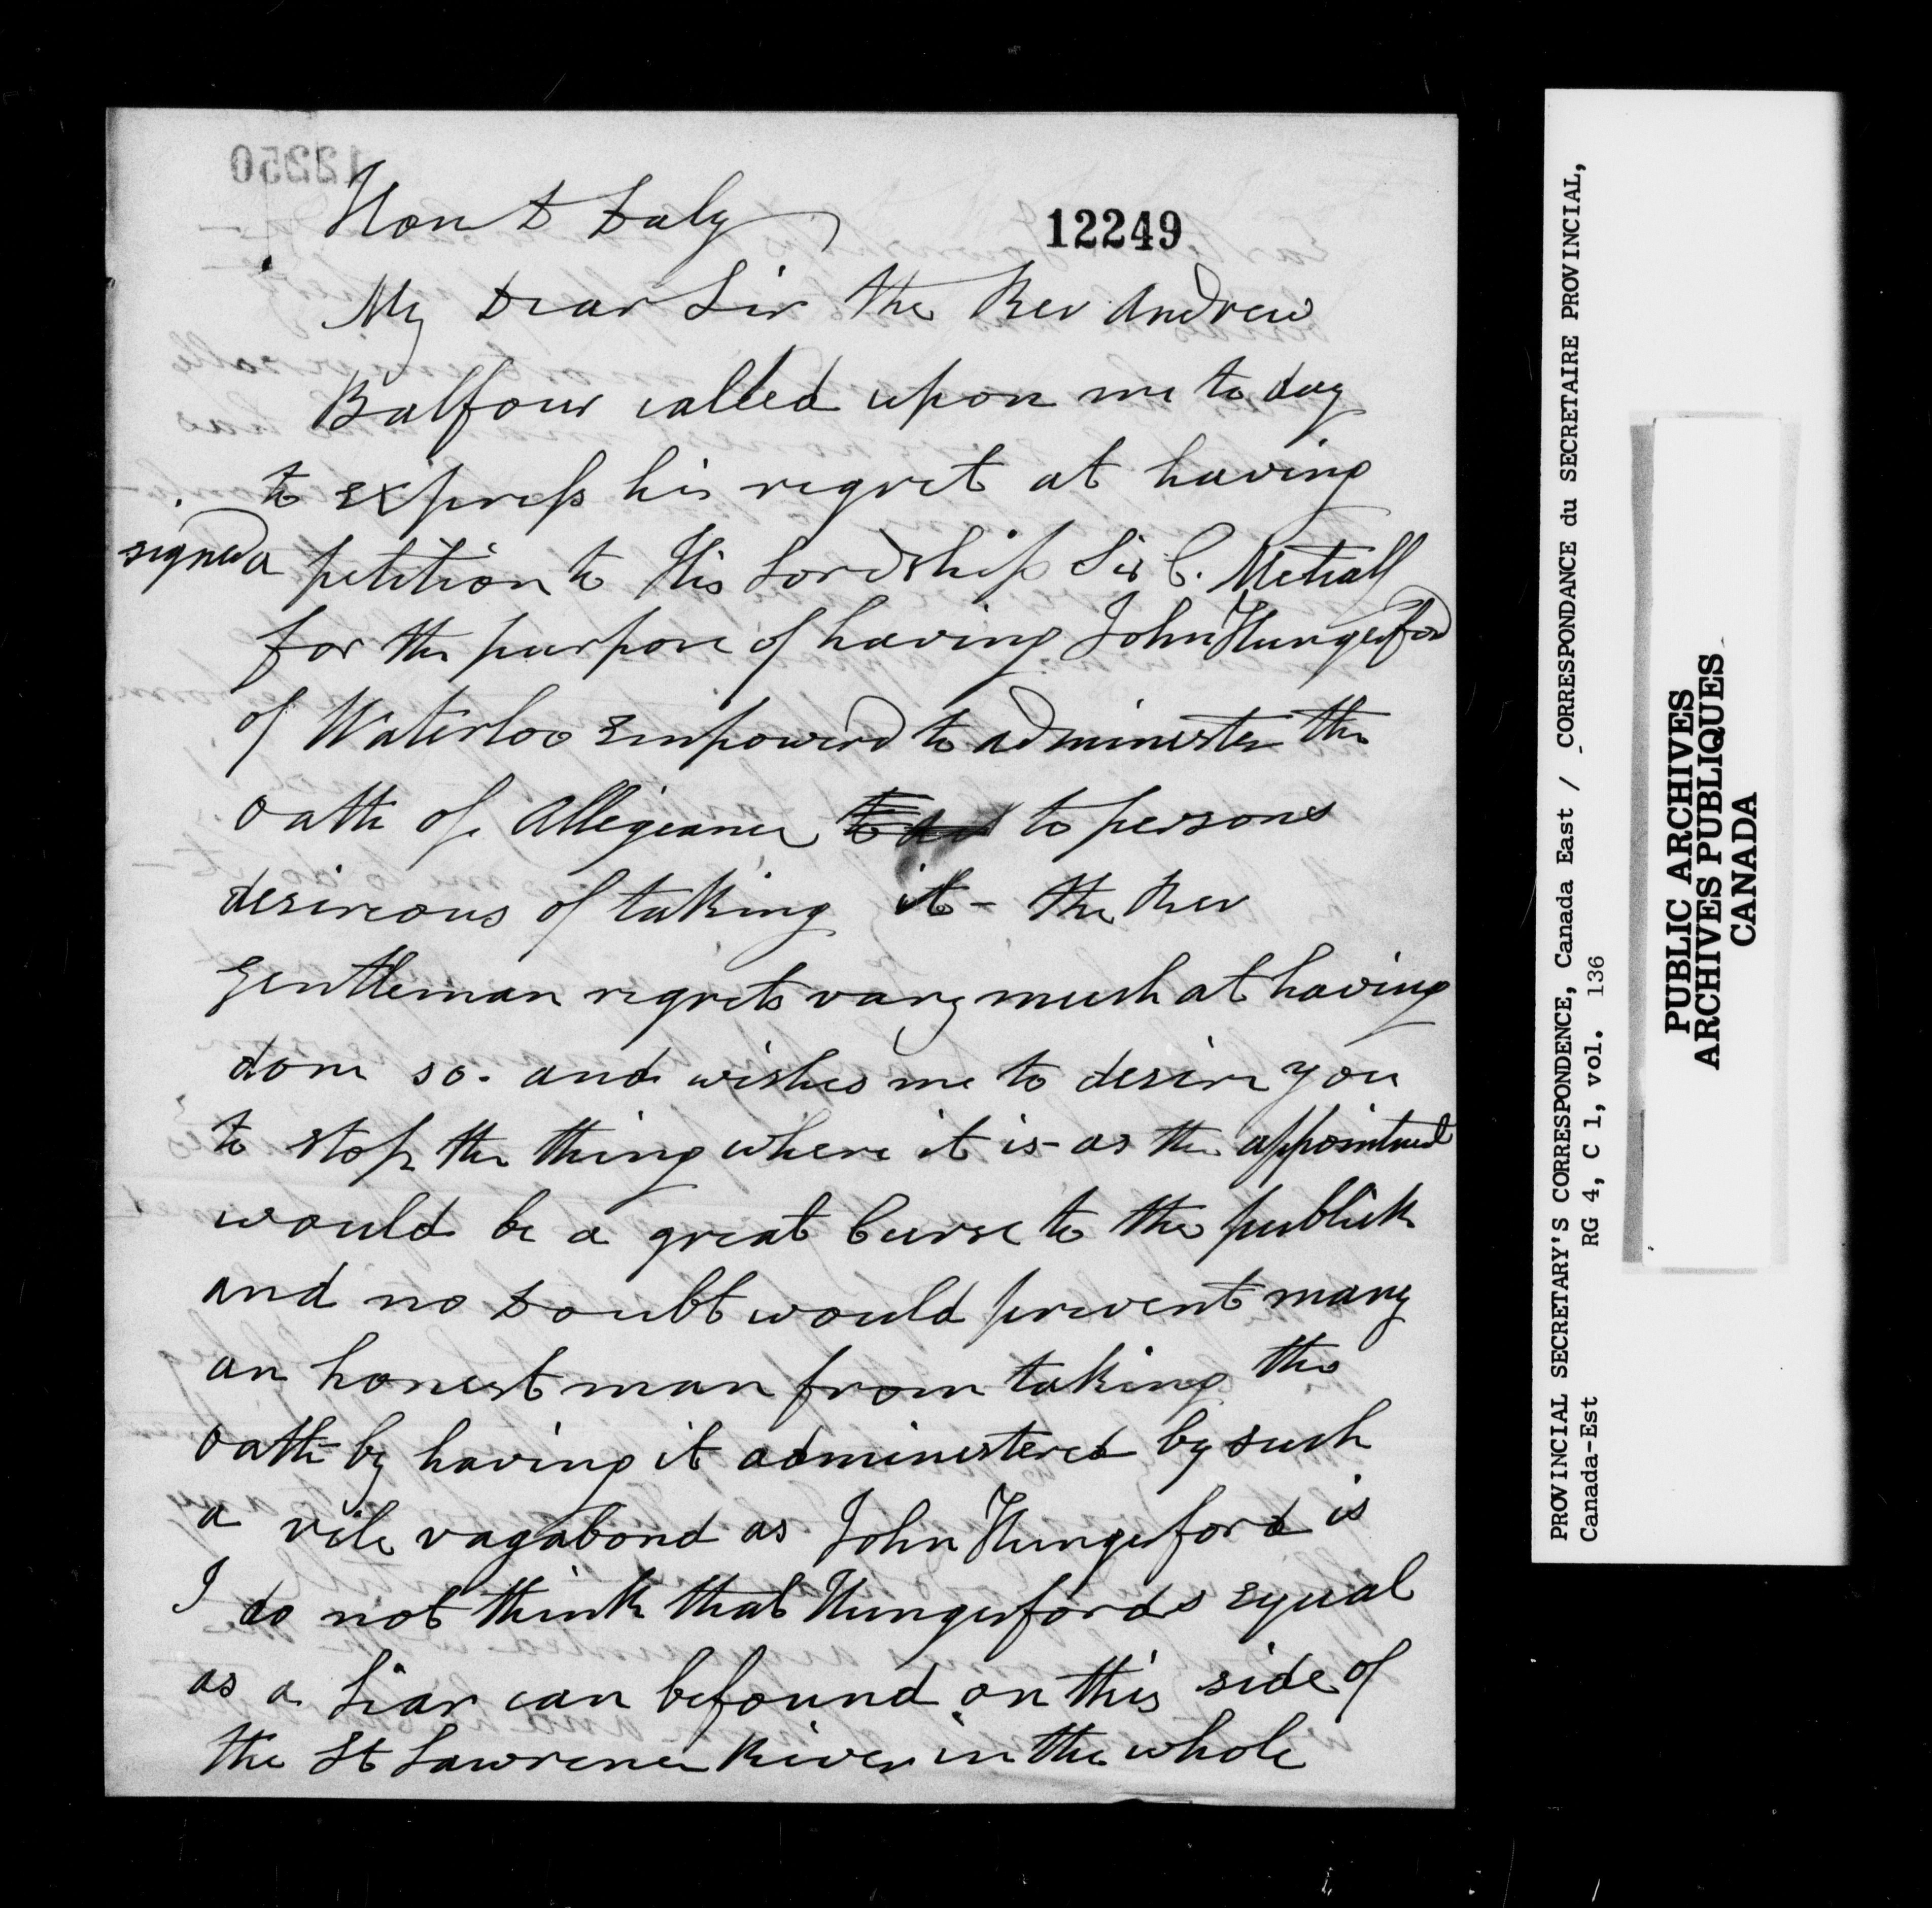 12250
Hon D Daly
12249
My Dear Sir the Rev Andrew
Balfour called upon me to day
to Express his regret at having
signed a petition to His Lordship Sir C. Metcalf
for the purpose of having John Hungerford
of Waterloo Empowerd to administer the
oath of Allegeance to persons
desireous of taking it - the Rev
Gentleman regrets vary much at having
done so. and wishes me to desire you
to stop the thing where it is - as the appointment
would be a great Curse to the publick
and no Doubt would prevent many
an honest man from taking the
oath by having it administered by such
a vile vagabond as John Hungerford is
I do not think that Hungerfords Equal
as a Liar can be found on this side of
the St Lawrence River in the whole
PROVINCIAL SECRETARY'S CORRESPONDENCE, Canada East / CORRESPONDANCE du SECRETAIRE PROVINCIAL,
Canada-Est RG 4, C 1, vol. 136
PUBLIC ARCHIVES
ARCHIVES PUBLIQUES
CANADA